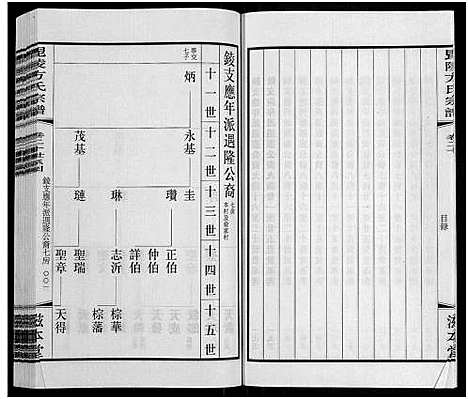 毘陵方氏宗譜
卷二
目錄
滋本堂
錂支應年派遇隆公裔
七房
十一世十二世十三世十四世十五世
七子
炳
永基
圭
瓚
正伯
仲伯
詳伯
琳
志沂
棕華
棕藩
茂基
璉
聖瑞
聖章
天得
毘陵方氏宗譜
錂支應年派遇隆公裔七房
滋本堂